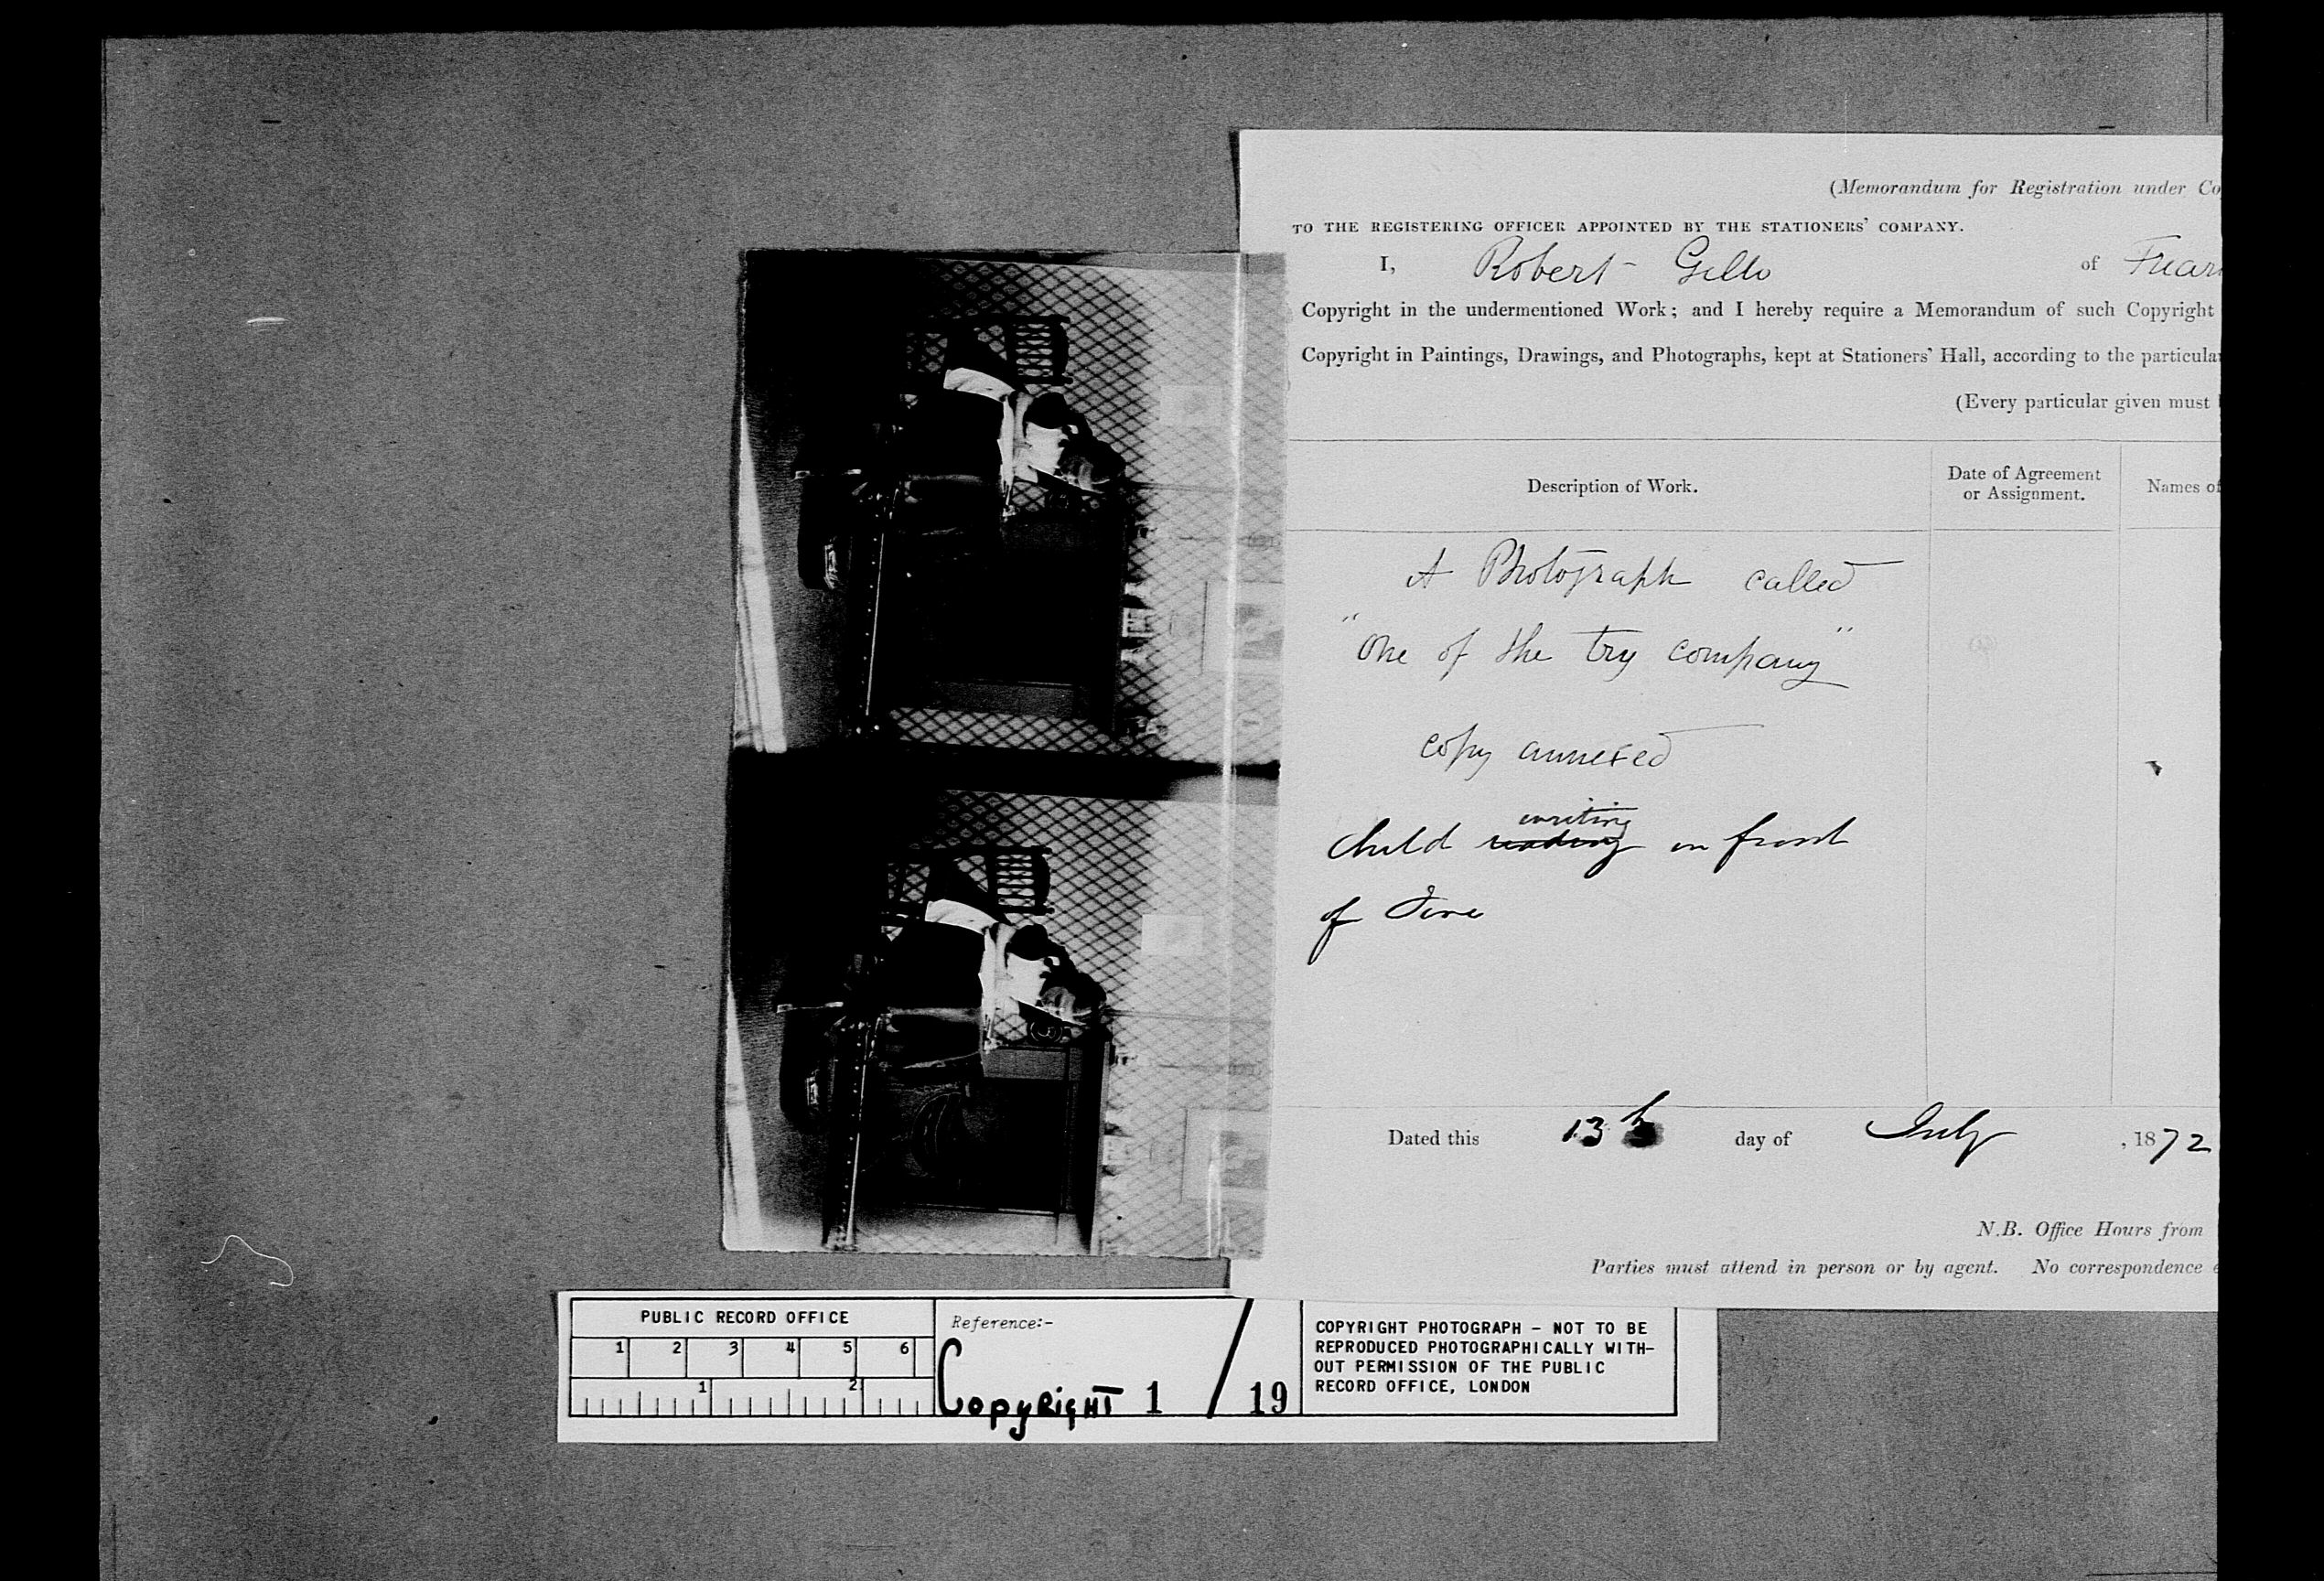 (Memorandum for Registration under Co
TO THE REGISTERING OFFICER APPOINTED BY THE STATIONERS' COMPANY.
I, Robert Gillo of Friar
Copyright in the undermentioned Work; and I hereby require a Memorandum of such Copyright
Copyright in Paintings, Drawings, and Photographs, kept at Stationers' Hall, according to the particular
(Every particular given must
Description of Work.
Date of Agreement
or Assignment.
Names of
A Photograph called
"One of the try company"
copy annexed
writing
Child reading in front
of Fire
Dated this 13th day of July, 1872
N.B. Office Hours from
Parties must attend in person or by agent. No correspondence
PUBLIC RECORD OFFICE
1 2 3 4 5 6
1 2
Reference:-
Copyright 1 / 19
COPYRIGHT PHOTOGRAPH - NOT TO BE
REPRODUCED PHOTOGRAPHICALLY WITH-
OUT PERMISSION OF THE PUBLIC
RECORD OFFICE, LONDON